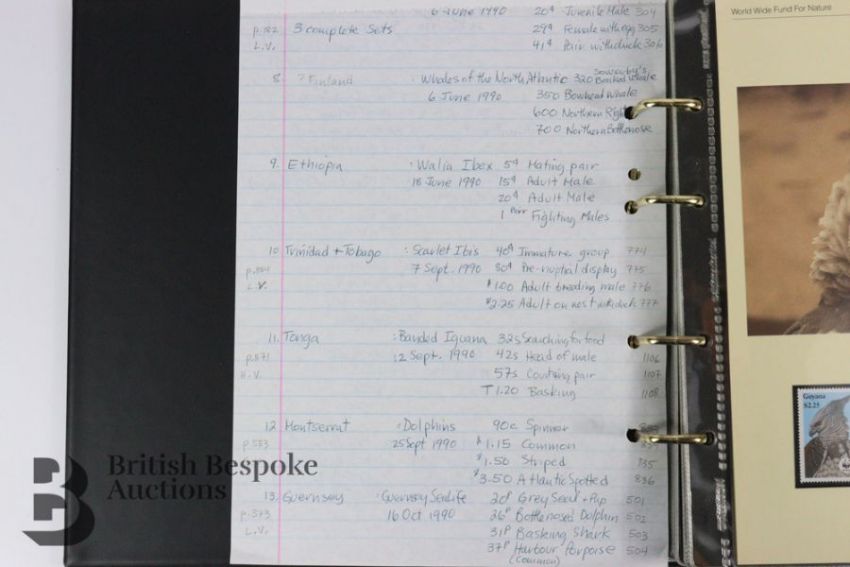 6 June 1990 20¢ Juvenile Male 304
p.182 3 complete Sets 29¢ Female with egg 305
L.V. 41¢ Pair with chick 306
8. ? Finland : Whales of the North Atlantic 320 Sowerby's Beaked Whale
6 June 1990 350 Bowhead Whale
600 Northern Right
700 Northern Bottlenose
9. Ethiopia : Walia Ibex 5¢ Mating pair
18 June 1990 15¢ Adult Male
20¢ Adult Male
1 Birr Fighting Males
10 Trinidad + Tobago : Scarlet Ibis 40¢ Immature group 774
7 Sept. 1990 80¢ Pre-nuptial display 775
L.V. $1.00 Adult breeding male 776
$2.25 Adult on nest with chick 777
11. Tonga : Banded Iguana 32s Searching for food
p.571 12 Sept. 1990 42s Head of male 1106
57s Courting pair 1107
T1.20 Basking 1108
12 Montserrat : Dolphins 90c Spinner
25 Sept 1990 $1.15 Common
$1.50 Striped 835
$3.50 Atlantic Spotted 836
13. Guernsey : Guernsey Sealife 20p Grey Seal + Pup 501
p.373 16 Oct 1990 26p Bottlenosed Dolphin 502
L.V. 31p Basking Shark 503
37p Harbour Porpoise 504
(Common)
World Wide Fund For Nature
Guyana
$2.25
B
British Bespoke
Auctions